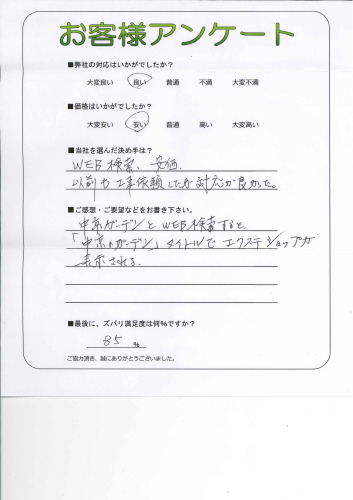 お客様アンケート
■弊社の対応はいかがでしたか?
大変良い 良い 普通 不満 大変不満
■価格はいかがでしたか?
大変安い 安い 普通 高い 大変高い
■当社を選んだ決め手は?
WEB検索、安価.
以前も工事依頼したが対応が良かった。
■ご感想・ご要望などをお書き下さい。
中京ガーデンとWEB検索すると
「中京ガーデン」タイトルでエクステショップが
表示される.
■最後に、ズバリ満足度は何%ですか?
85 %
ご協力頂き、誠にありがとうございました。